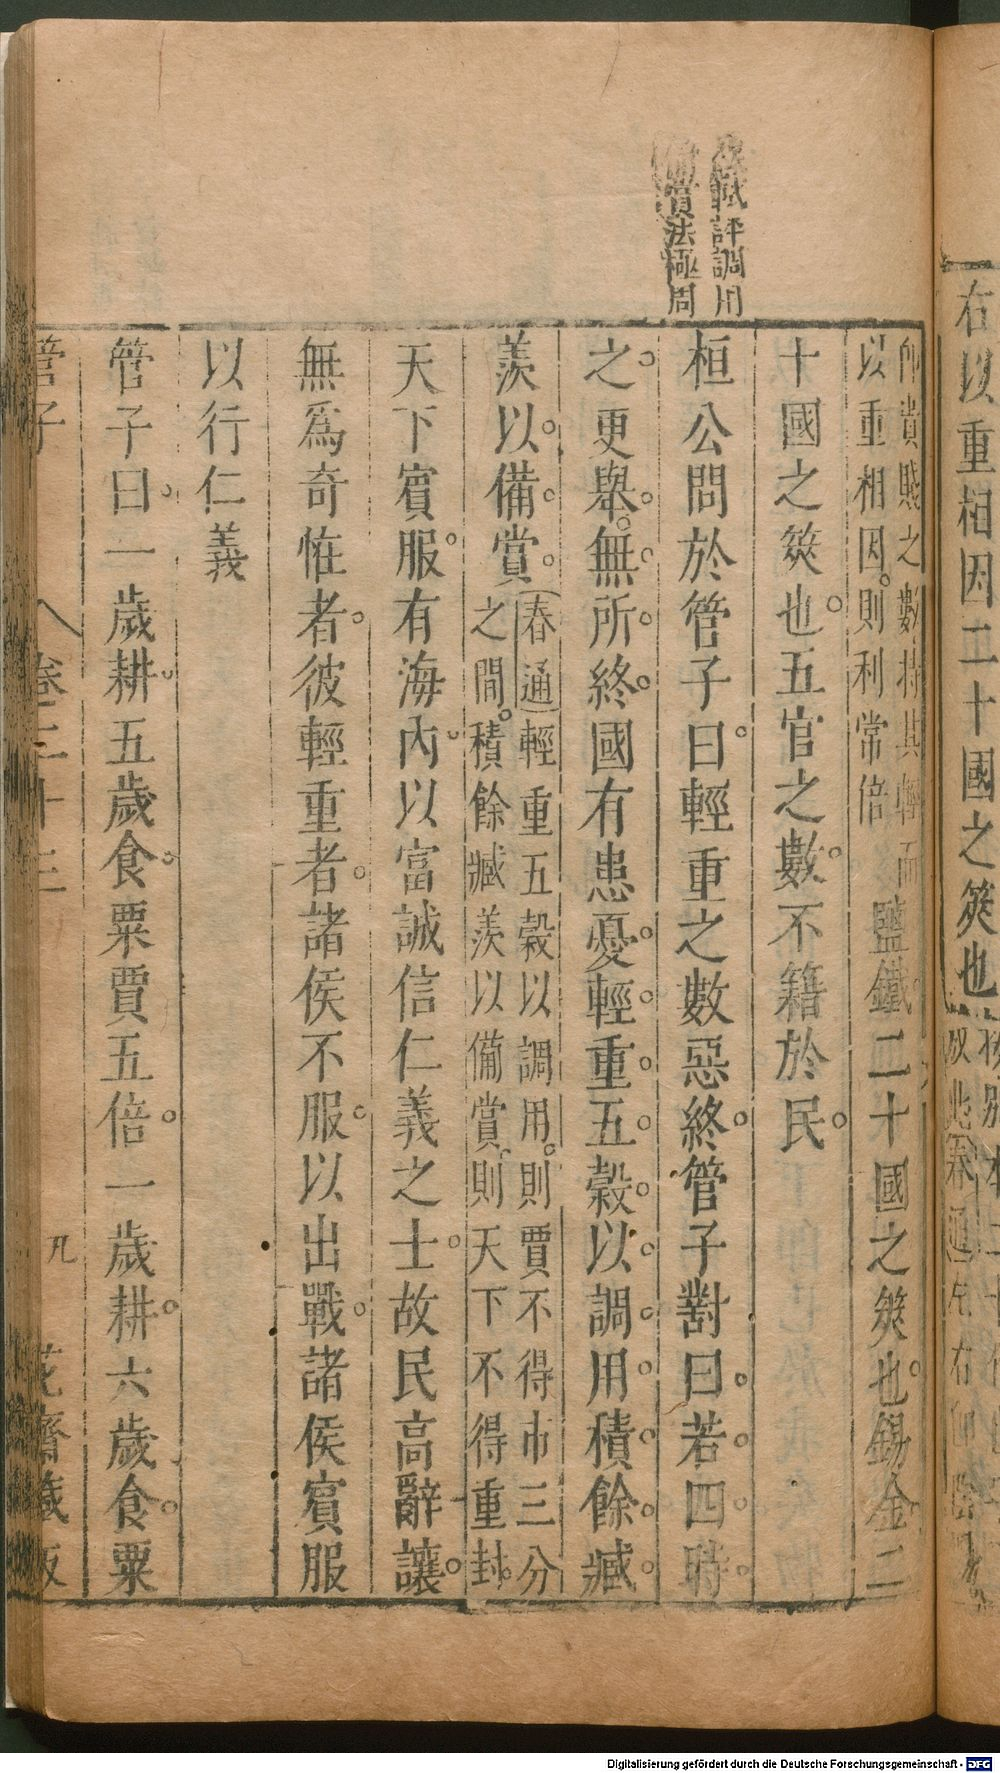 右以重相因二十國之筴也
仰貴賤之數持其輕而
以重相因則利常倍
鹽鐵二十國之筴也錫金二
十國之筴也五官之數不籍於民
評調用
賞法極周
桓公問於管子曰輕重之數惡終管子對曰若四時
之更舉無所終國有患憂輕重五穀以調用積餘臧
羨以備賞
春通輕重五穀以調用則賈不得市三分
之間積餘臧羨以備賞則天下不得重封
天下賓服有海內以富誠信仁義之士故民高辭讓
無爲奇恠者彼輕重者諸侯不服以出戰諸侯賓服
以行仁義
管子曰一歲耕五歲食粟賈五倍一歲耕六歲食粟
管子
卷二十三
九
花齋藏板
Digitalisierung gefördert durch die Deutsche Forschungsgemeinschaft - DFG